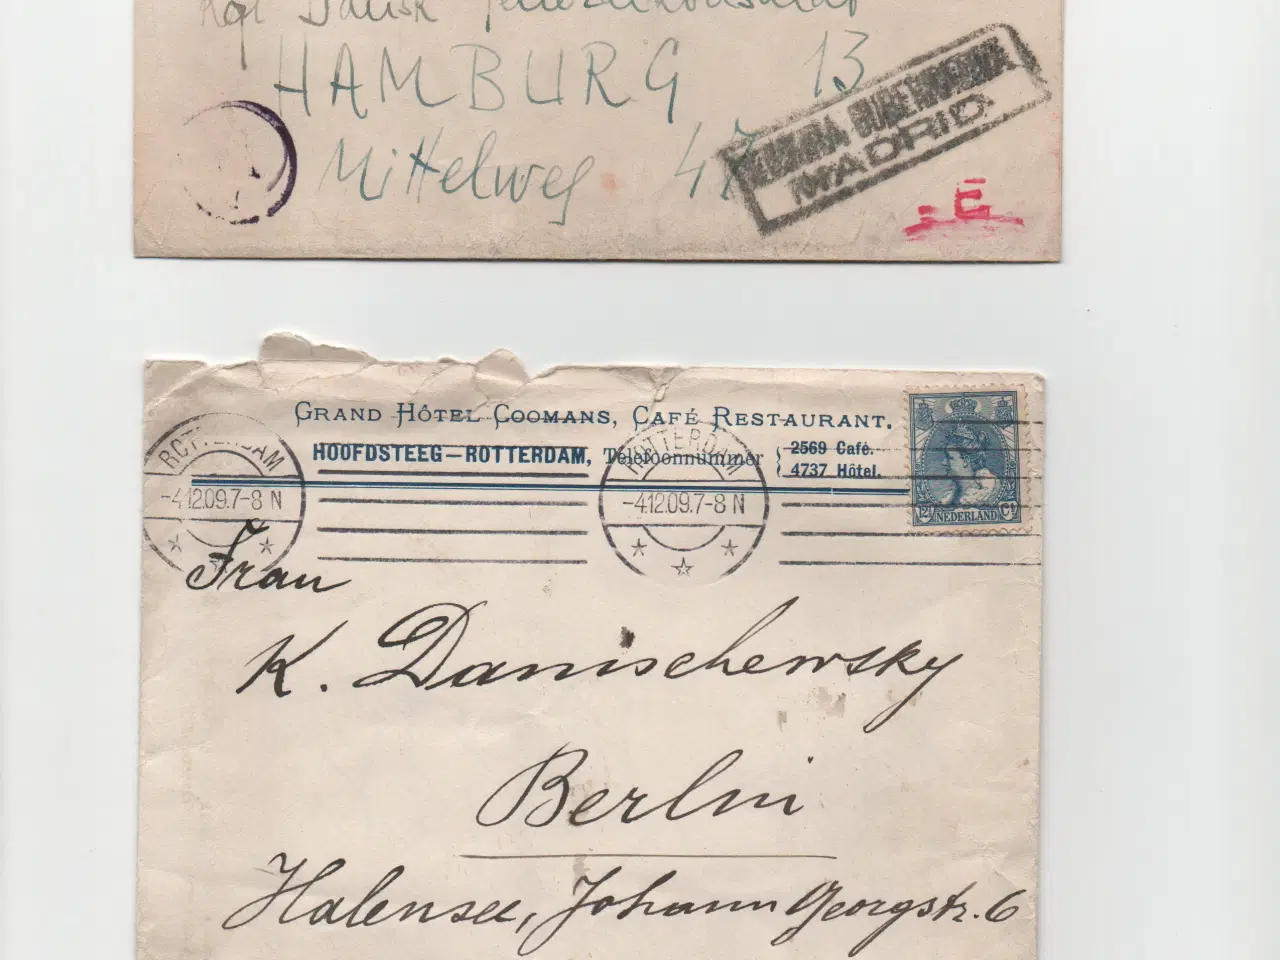 Kgl Dansk Generalkonsulat
HAMBURG 13
Mittelweg 47
CENSURA GUBERNATIVA
MADRID
E
GRAND HÔTEL COOMANS, CAFÉ RESTAURANT.
HOOFDSTEEG—ROTTERDAM, Telefoonnummer { 2569 Café.
4737 Hôtel.
ROTTERDAM
-4.12.09.7-8 N
ROTTERDAM
-4.12.09.7-8 N
12½ NEDERLAND Ct
Frau
K. Danischewsky
Berlin
Halensee, Johann Georgstr. 6